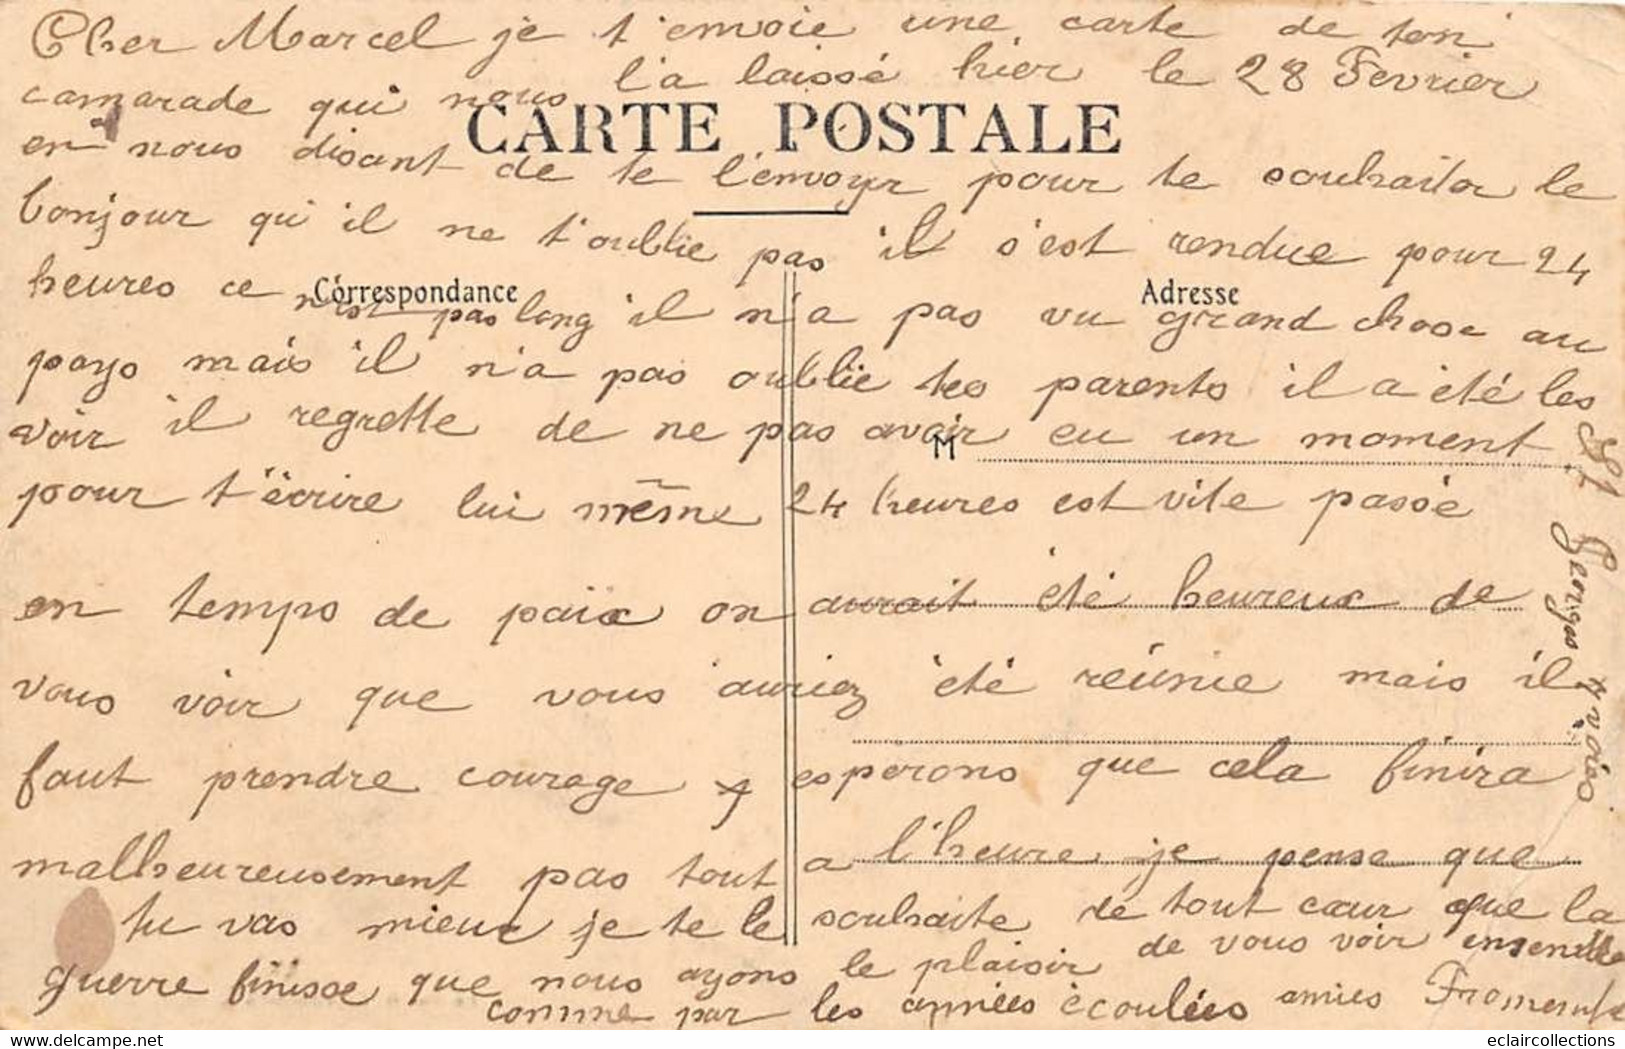 Cher Marcel je t'envoie une carte de ton
camarade qui nous l'a laissé hier le 28 Fevrier
CARTE POSTALE
en nous disant de te l'envoyr pour te souhaiter le
bonjour qu'il ne t'oublie pas il s'est rendue pour 24
Correspondance
Adresse
heures ce n'est pas long il n'a pas vu grand chose au
pays mais il n'a pas oublie tes parents il a été les
voir il regrette de ne pas avoir eu un moment
M
pour t'écrire lui même 24 heures est vite passée
en temps de paix on aurait été heureux de
vous voir que vous auriez été réunie mais il
faut prendre courage esperons que cela finira
malheureusement pas tout a l'heure je pense que
tu vas mieux je te le souhaite de tout cœur que la
guerre finisse que nous ayons le plaisir de vous voir ensemble
comme par les années écoulées amies Froment
St Georges